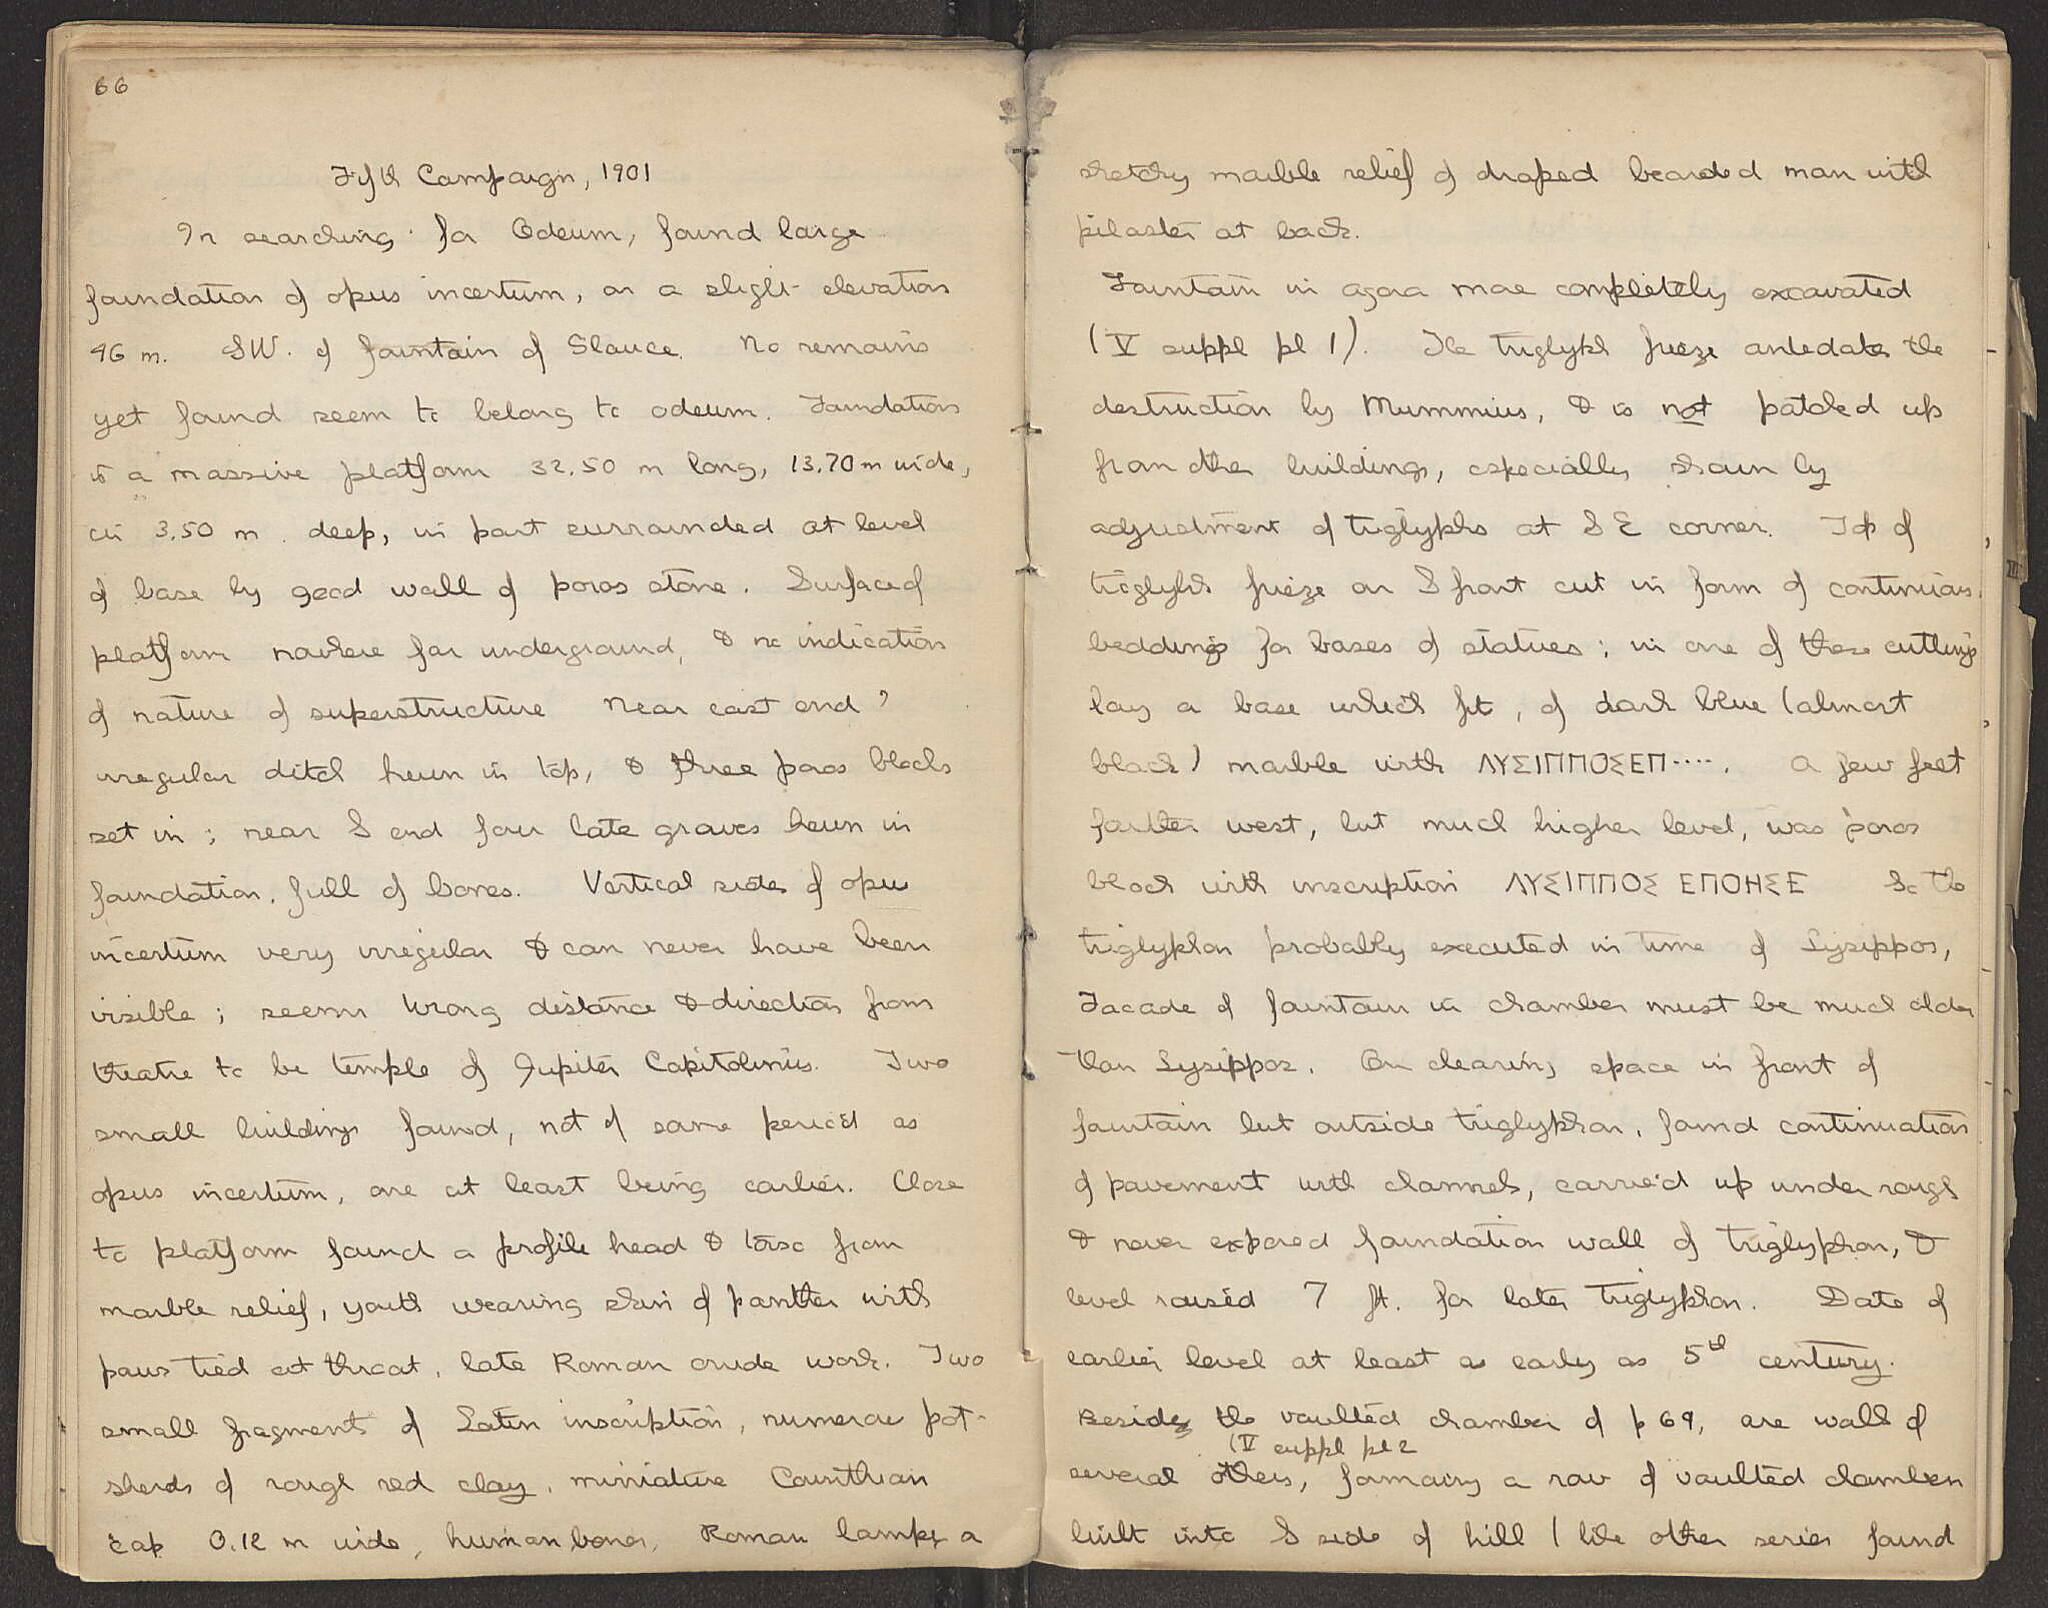 66
Fifth Campaign, 1901
In searching for Odeum, found large
foundation of opus incertum, on a slight elevation
46 m. SW. of fountain of Glauce. No remains
yet found seem to belong to odeum. Foundation
is a massive platform 32.50 m long, 13.70 m wide,
3.50 m. deep, in part surrounded at level
of base by good wall of poros stone. Surface of
platform nowhere far underground, & no indication
of nature of superstructure Near east end ?
irregular ditch hewn in top, & three poros blocks
set in ; near S end four late graves hewn in
foundation, full of bones. Vertical sides of opus
incertum very irregular & can never have been
visible ; seems wrong distance & direction from
theatre to be temple of Jupiter Capitolinus. Two
small buildings found, not of same period as
opus incertum, one at least being earlier. Close
to platform found a profile head & torso from
marble relief, youth wearing skin of panther with
paws tied at throat, late Roman crude work. Two
small fragments of Latin inscription, numerous pot-
sherds of rough red clay, miniature Corinthian
cap 0.12 m wide, human bones, Roman lamps, a
sketchy marble relief of draped bearded man with
pilaster at back.
Fountain in agora more completely excavated
(V suppl pl 1). The triglyph frieze antedates the
destruction by Mummius, & is not patched up
from other buildings, especially shown by
adjustment of triglyphs at S E corner. Top of
triglyph frieze on S front cut in form of continuous
beddings for bases of statues ; in one of these cuttings
lay a base which fit, of dark blue (almost
black) marble with ΛΥΣΙΠΠΟΣΕΠ····. A few feet
farther west, but much higher level, was poros
block with inscription ΛΥΣΙΠΠΟΣ ΕΠΟΗΣΕ So the
triglyphon probably executed in time of Lysippos,
Facade of fountain in chamber must be much older
than Lysippos. On clearing space in front of
fountain but outside triglyphon, found continuation
of pavement with channels, carried up under rough
& never exposed foundation wall of triglyphon, &
level raised 7 ft. for later triglyphon. Date of
earlier level at least as early as 5th century.
Besides the vaulted chamber of p 69, are walls of
(V suppl pl 2
several others, forming a row of vaulted chambers
built into S side of hill (like other series found